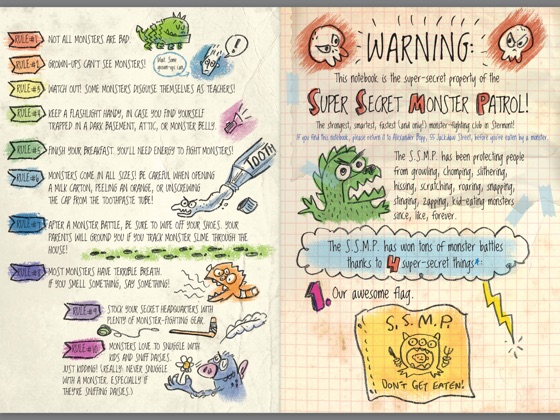 RULE #1
NOT ALL MONSTERS ARE BAD.
RULE #2
GROWN-UPS CAN'T SEE MONSTERS!
RULE #3
WATCH OUT! SOME MONSTERS DISGUISE THEMSELVES AS TEACHERS!
RULE #4
KEEP A FLASHLIGHT HANDY, IN CASE YOU FIND YOURSELF
TRAPPED IN A DARK BASEMENT, ATTIC, OR MONSTER BELLY.
RULE #5
FINISH YOUR BREAKFAST. YOU'LL NEED ENERGY TO FIGHT MONSTERS!
RULE #6
MONSTERS COME IN ALL SIZES! BE CAREFUL WHEN OPENING
A MILK CARTON, PEELING AN ORANGE, OR UNSCREWING
THE CAP FROM THE TOOTHPASTE TUBE!
TOOTH
RULE #7
AFTER A MONSTER BATTLE, BE SURE TO WIPE OFF YOUR SHOES. YOUR
PARENTS WILL GROUND YOU IF YOU TRACK MONSTER SLIME THROUGH THE
HOUSE!
RULE #8
MOST MONSTERS HAVE TERRIBLE BREATH.
IF YOU SMELL SOMETHING, SAY SOMETHING!
RULE #9
STOCK YOUR SECRET HEADQUARTERS WITH
PLENTY OF MONSTER-FIGHTING GEAR.
RULE #10
MONSTERS LOVE TO SNUGGLE WITH
KIDS AND SNIFF DAISIES.
JUST KIDDING! (REALLY: NEVER SNUGGLE
WITH A MONSTER. ESPECIALLY IF
THEY'RE SNIFFING DAISIES.)
WARNING:
This notebook is the super-secret property of the
SUPER SECRET MONSTER PATROL!
The strongest, smartest, fastest (and only!) monster-fighting club in Stermont!
If you find this notebook, please return it to Alexander Bopp, before you're eaten by a monster.
The S.S.M.P. has been protecting people
from growling, chomping, slithering,
hissing, scratching, roaring, snapping,
stinging, zapping, kid-eating monsters
since, like, forever.
The S.S.M.P. has won tons of monster battles
thanks to 4 super-secret things*:
1. Our awesome flag.
S.S.M.P.
DON'T GET EATEN!